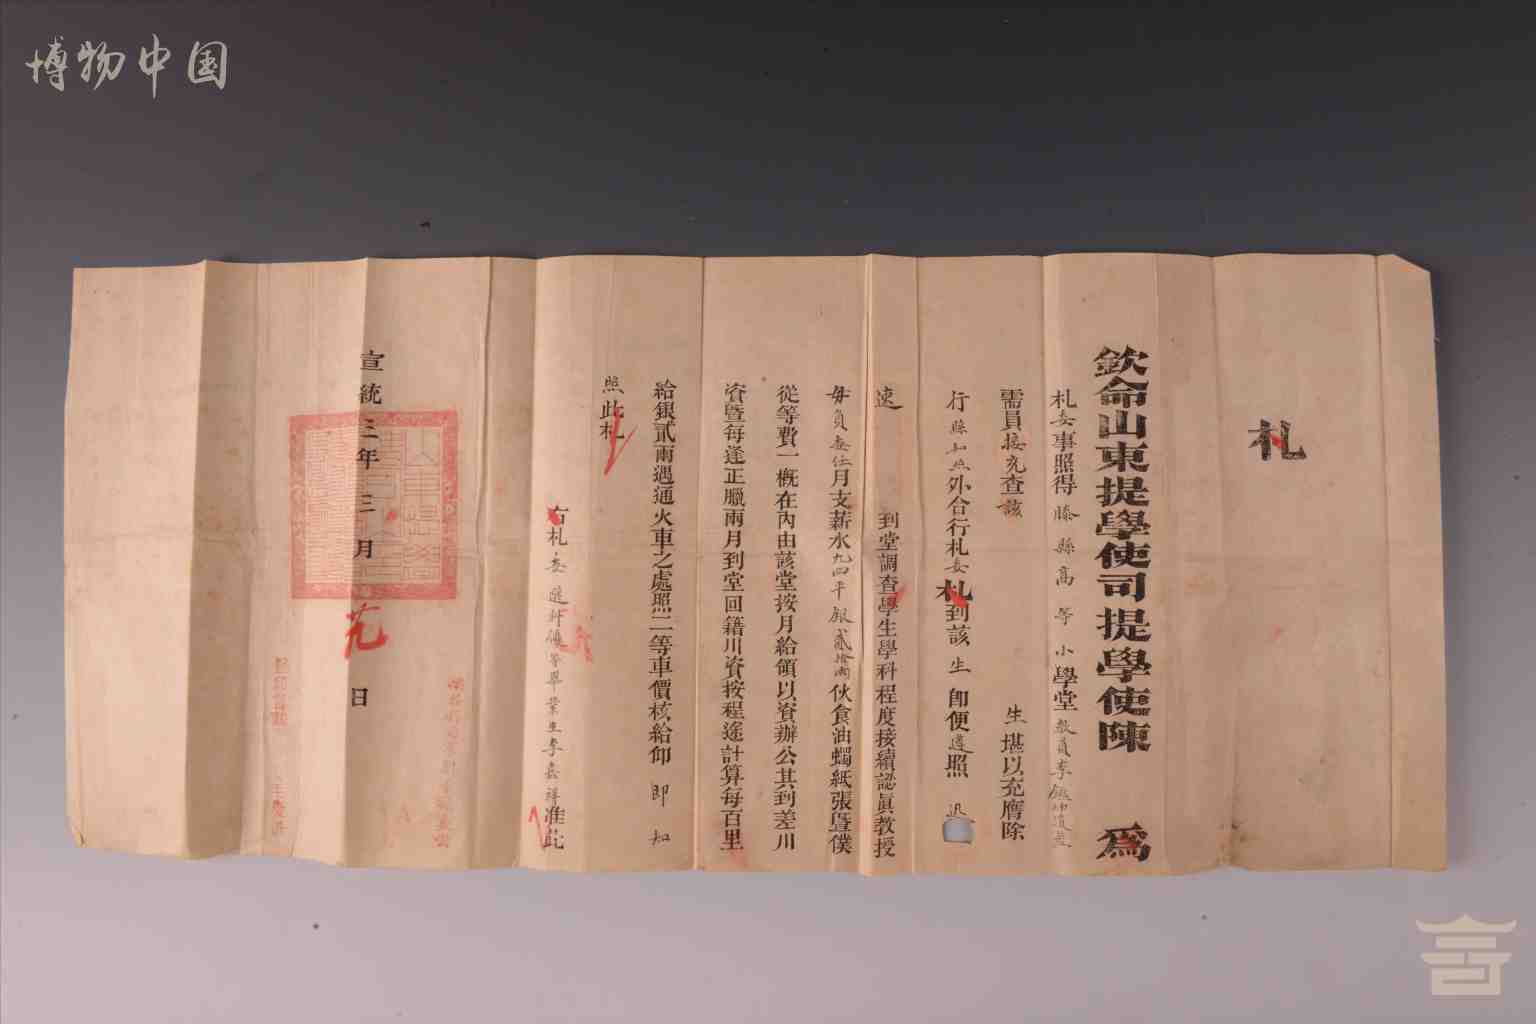 博物中国
札
欽命山東提學使司提學使陳 爲
札委事照得滕縣高等小學堂教員李
需員接充查該 生堪以充膺除
行縣知照外合行札委札到該生即便遵照迅
速 到堂調查學生學科程度接續認眞教授
每員每月支薪水九四平銀貳拾兩伙食油蠋紙張暨僕
從等費一概在內由該堂按月給領以資辦公其到差川
資暨每逢正臘兩月到堂回籍川資按程途計算每百里
給銀貳兩遇通火車之處照二等車價核給仰即知
照此札
右札委選科優等畢業生李嘉祥准此
宣統三年三月 日